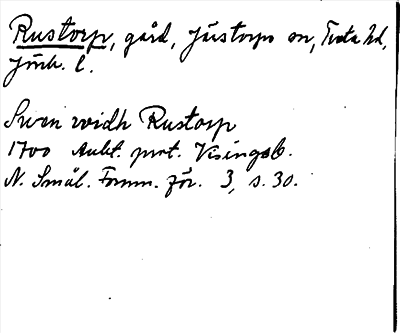 Rustorp, gård, Järstorps sn, Tveta hd,
Jönk. l.
Swen widh Rustorp
1700 Aukt. prot. Visingsb.
N. Smål. Fornm. för. 3, s. 30.